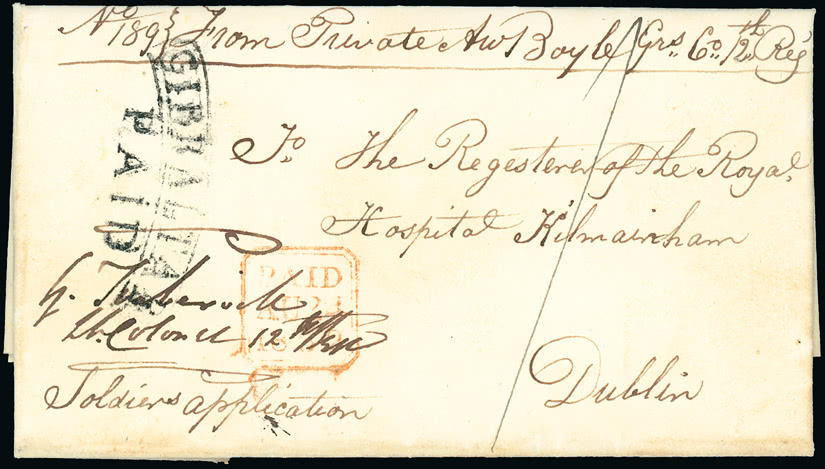 No. 1893 From Private Aw Boyle Grs. Co. 12th Reg
GIBRALTAR
PAID
To. The Regesterer of the Royal
Hospital Kilmainham
PAID
AU 24
Lt. Colonel 12th
Soldiers application
Dublin